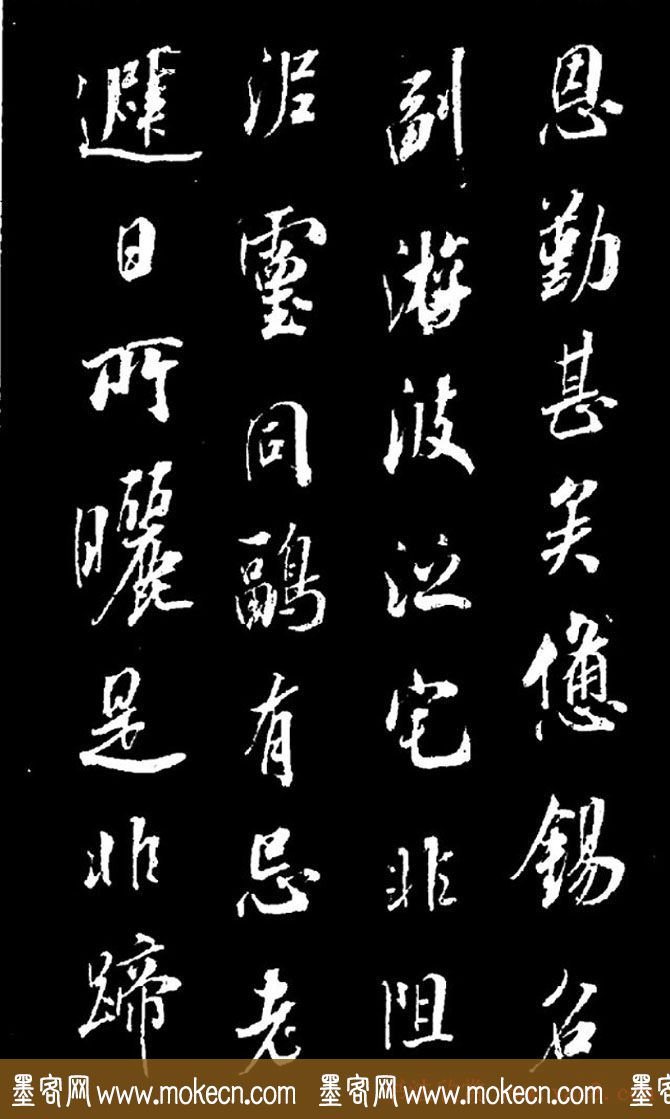 恩勤甚矣僡錫名
副游波泣宅非阻
泥靈同鷗有忌老
遲日所曬是非蹄
墨客网 www.mokecn.com 墨客网 www.mokecn.com 墨客